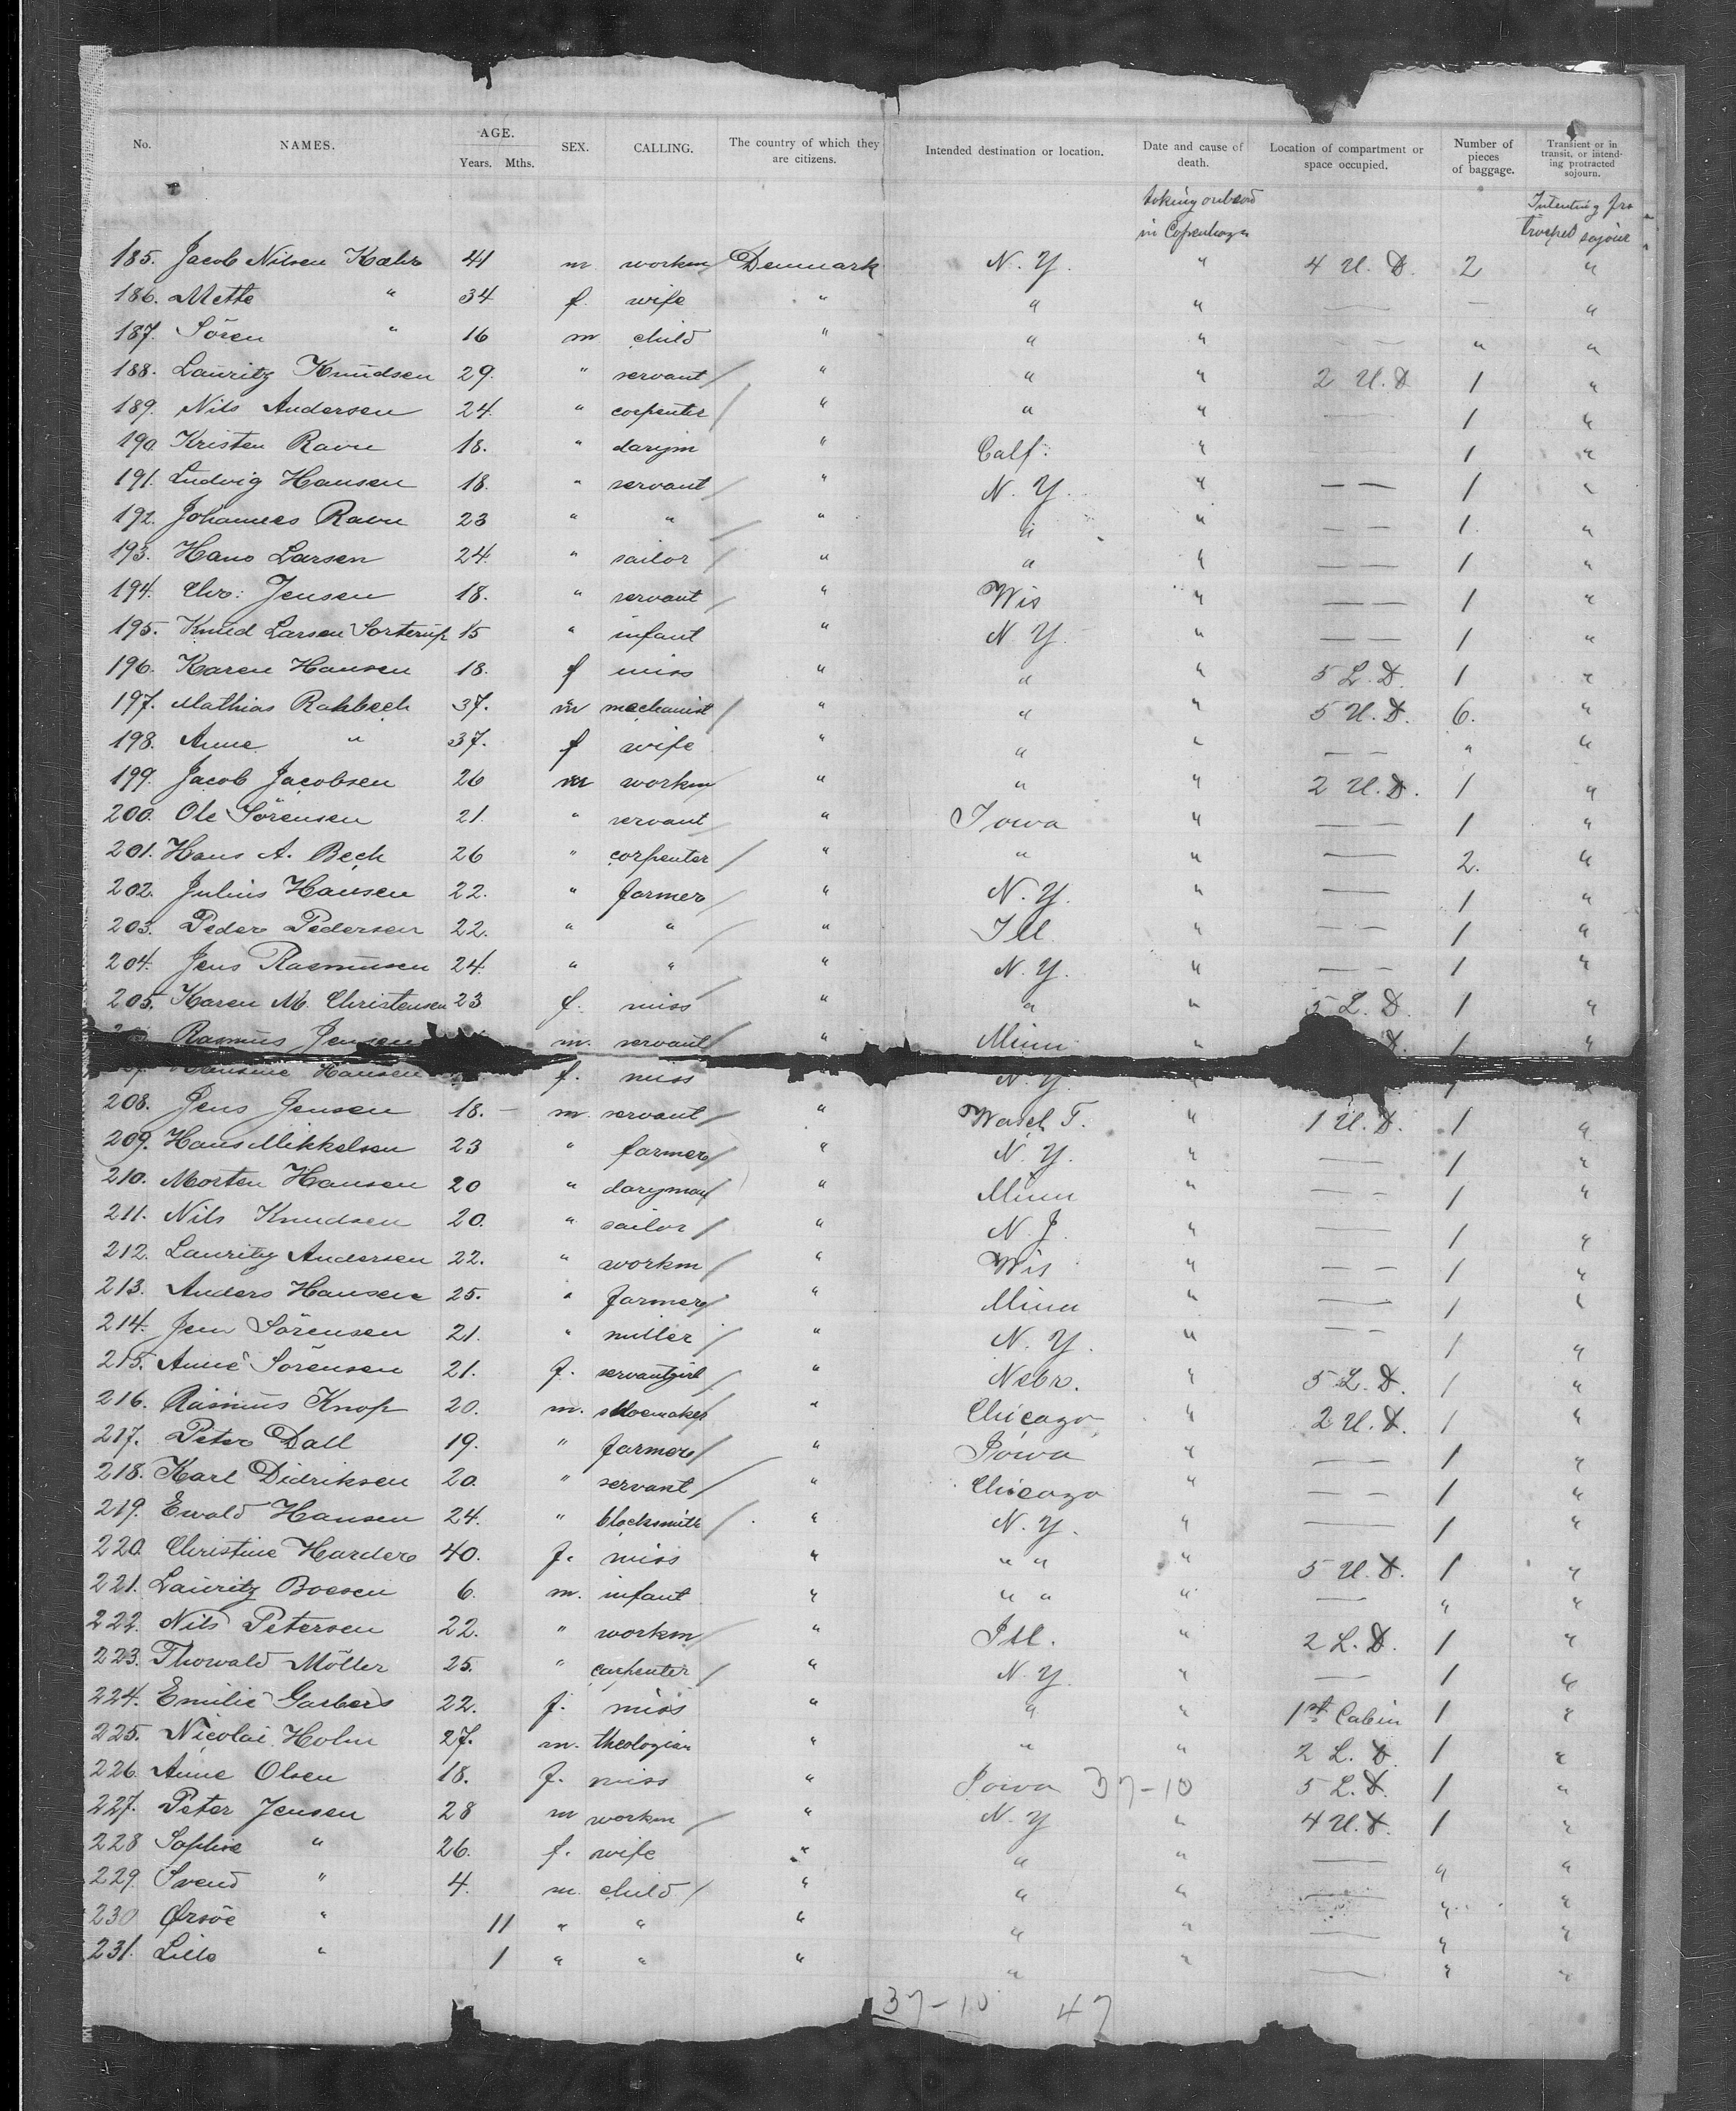 No. NAMES. AGE. Years. Mths. SEX. CALLING. The country of which they are citizens. Intended destination or location. Date and cause of death. Location of compartment or space occupied. Number of pieces of baggage. Transient or in transit, or intending protracted sojourn.
taking onboard in Copenhagen
185. Jacob Nilsen Kæhr 41 m workm Denmark N. Y. " 4 U. D. 2 "
186. Mette " 34 f. wife " " " — — "
187. Sören " 16 m child " " " — — " "
188. Lauritz Knudsen 29. " servant / " " " 2 U. D 1 "
189. Nils Andersen 24. " corpenter / " " " — 1 "
190 Kristen Ravn 18. " darijm " Calf: " — 1 "
191. Ludvig Hansen 18. " servant / " N. Y. " — — 1 "
192. Johannes Ravn 23 " " / " " " — — 1. "
193. Hans Larsen 24. " sailor / " " " — — 1 "
194. Chr: Jensen 18. " servant / " Wis " — — 1 "
195. Knud Larsen Sorterup 15 " infant " N. Y. " — — 1 "
196. Karen Hansen 18. f miss " " " 5 L. D. 1 "
197. Mathias Rahbech 37. m mechanist / " " " 5 U. D. 6. "
198. Anne " 37. f wife " " " — — " "
199. Jacob Jacobsen 26 m workm / " " " 2 U. D. 1 "
200. Ole Sörensen 21. " servant / " Iowa " — 1 "
201. Hans A. Bech 26 " corpenter / " " " — 2. "
202. Julius Hansen 22. " farmer / " N. Y. " — 1 "
203. Peder Pedersen 22. " " / " Ill. " — — 1 "
204. Jens Rasmussen 24. " " / " N. Y. " — — 1 "
205. Karen M. Christensen 23 f. miss " " " 5 L. D. 1 "
Rasmus Jensen m. servant / " Minn " D. 1 "
Hansine Hansen f. miss N. Y.
208. Jens Jensen 18. — m. servant / " Wash T. " 1 U. D. 1 "
209. Hans Mikkelsen 23 " farmer / " N. Y. " — 1 "
210. Morten Hansen 20 " daryman / " Minn " — — 1 "
211. Nils Knudsen 20. " sailor / " N J. " — 1 "
212. Lauritz Andersen 22. " workm / " Wis " — — 1 "
213. Anders Hansen 25. " farmer / " Minn " — 1 "
214. Jens Sörensen 21. " miller / " N. Y. " — — 1 "
215. Anne Sörensen 21. f. servantgirl / " Nebr. " 5 L. D. 1 "
216. Rasmus Knop 20. m. shoemaker " Chicago " 2 U. D. 1 "
217. Peter Dall 19. " farmer / " Iowa " — — 1 "
218. Karl Didriksen 20. " servant / " Chicago " — — 1 "
219. Ewald Hansen 24. " blocksmith / " N. Y. " — 1 "
220 Christine Harder 40. f. miss " " " " 5 U. D. 1 "
221. Lauritz Boesen 6. m. infant " " " " — " "
222. Nils Petersen 22. " workm / " Ill. " 2 L. D. 1 "
223. Thorvald Möller 25. " carpenter / " N. Y. " — 1 "
224. Emilie Garbers 22. f. miss " " " 1st Cabin 1 "
225. Nicolai Holm 27. m. theologian " " " 2 L. D. 1 "
226. Anne Olsen 18. f. miss " Iowa 37-10 5 L. D. 1 "
227. Peter Jensen 28 m workm / " N. Y " 4 U. D. 1 "
228 Sophie " 26. f. wife " " " — " "
229. Svend " 4. m. child / " " " — " "
230 Ørsöe " 11 " " " " " — " "
231. Lille " 1 " " " " " — " "
37-10 47